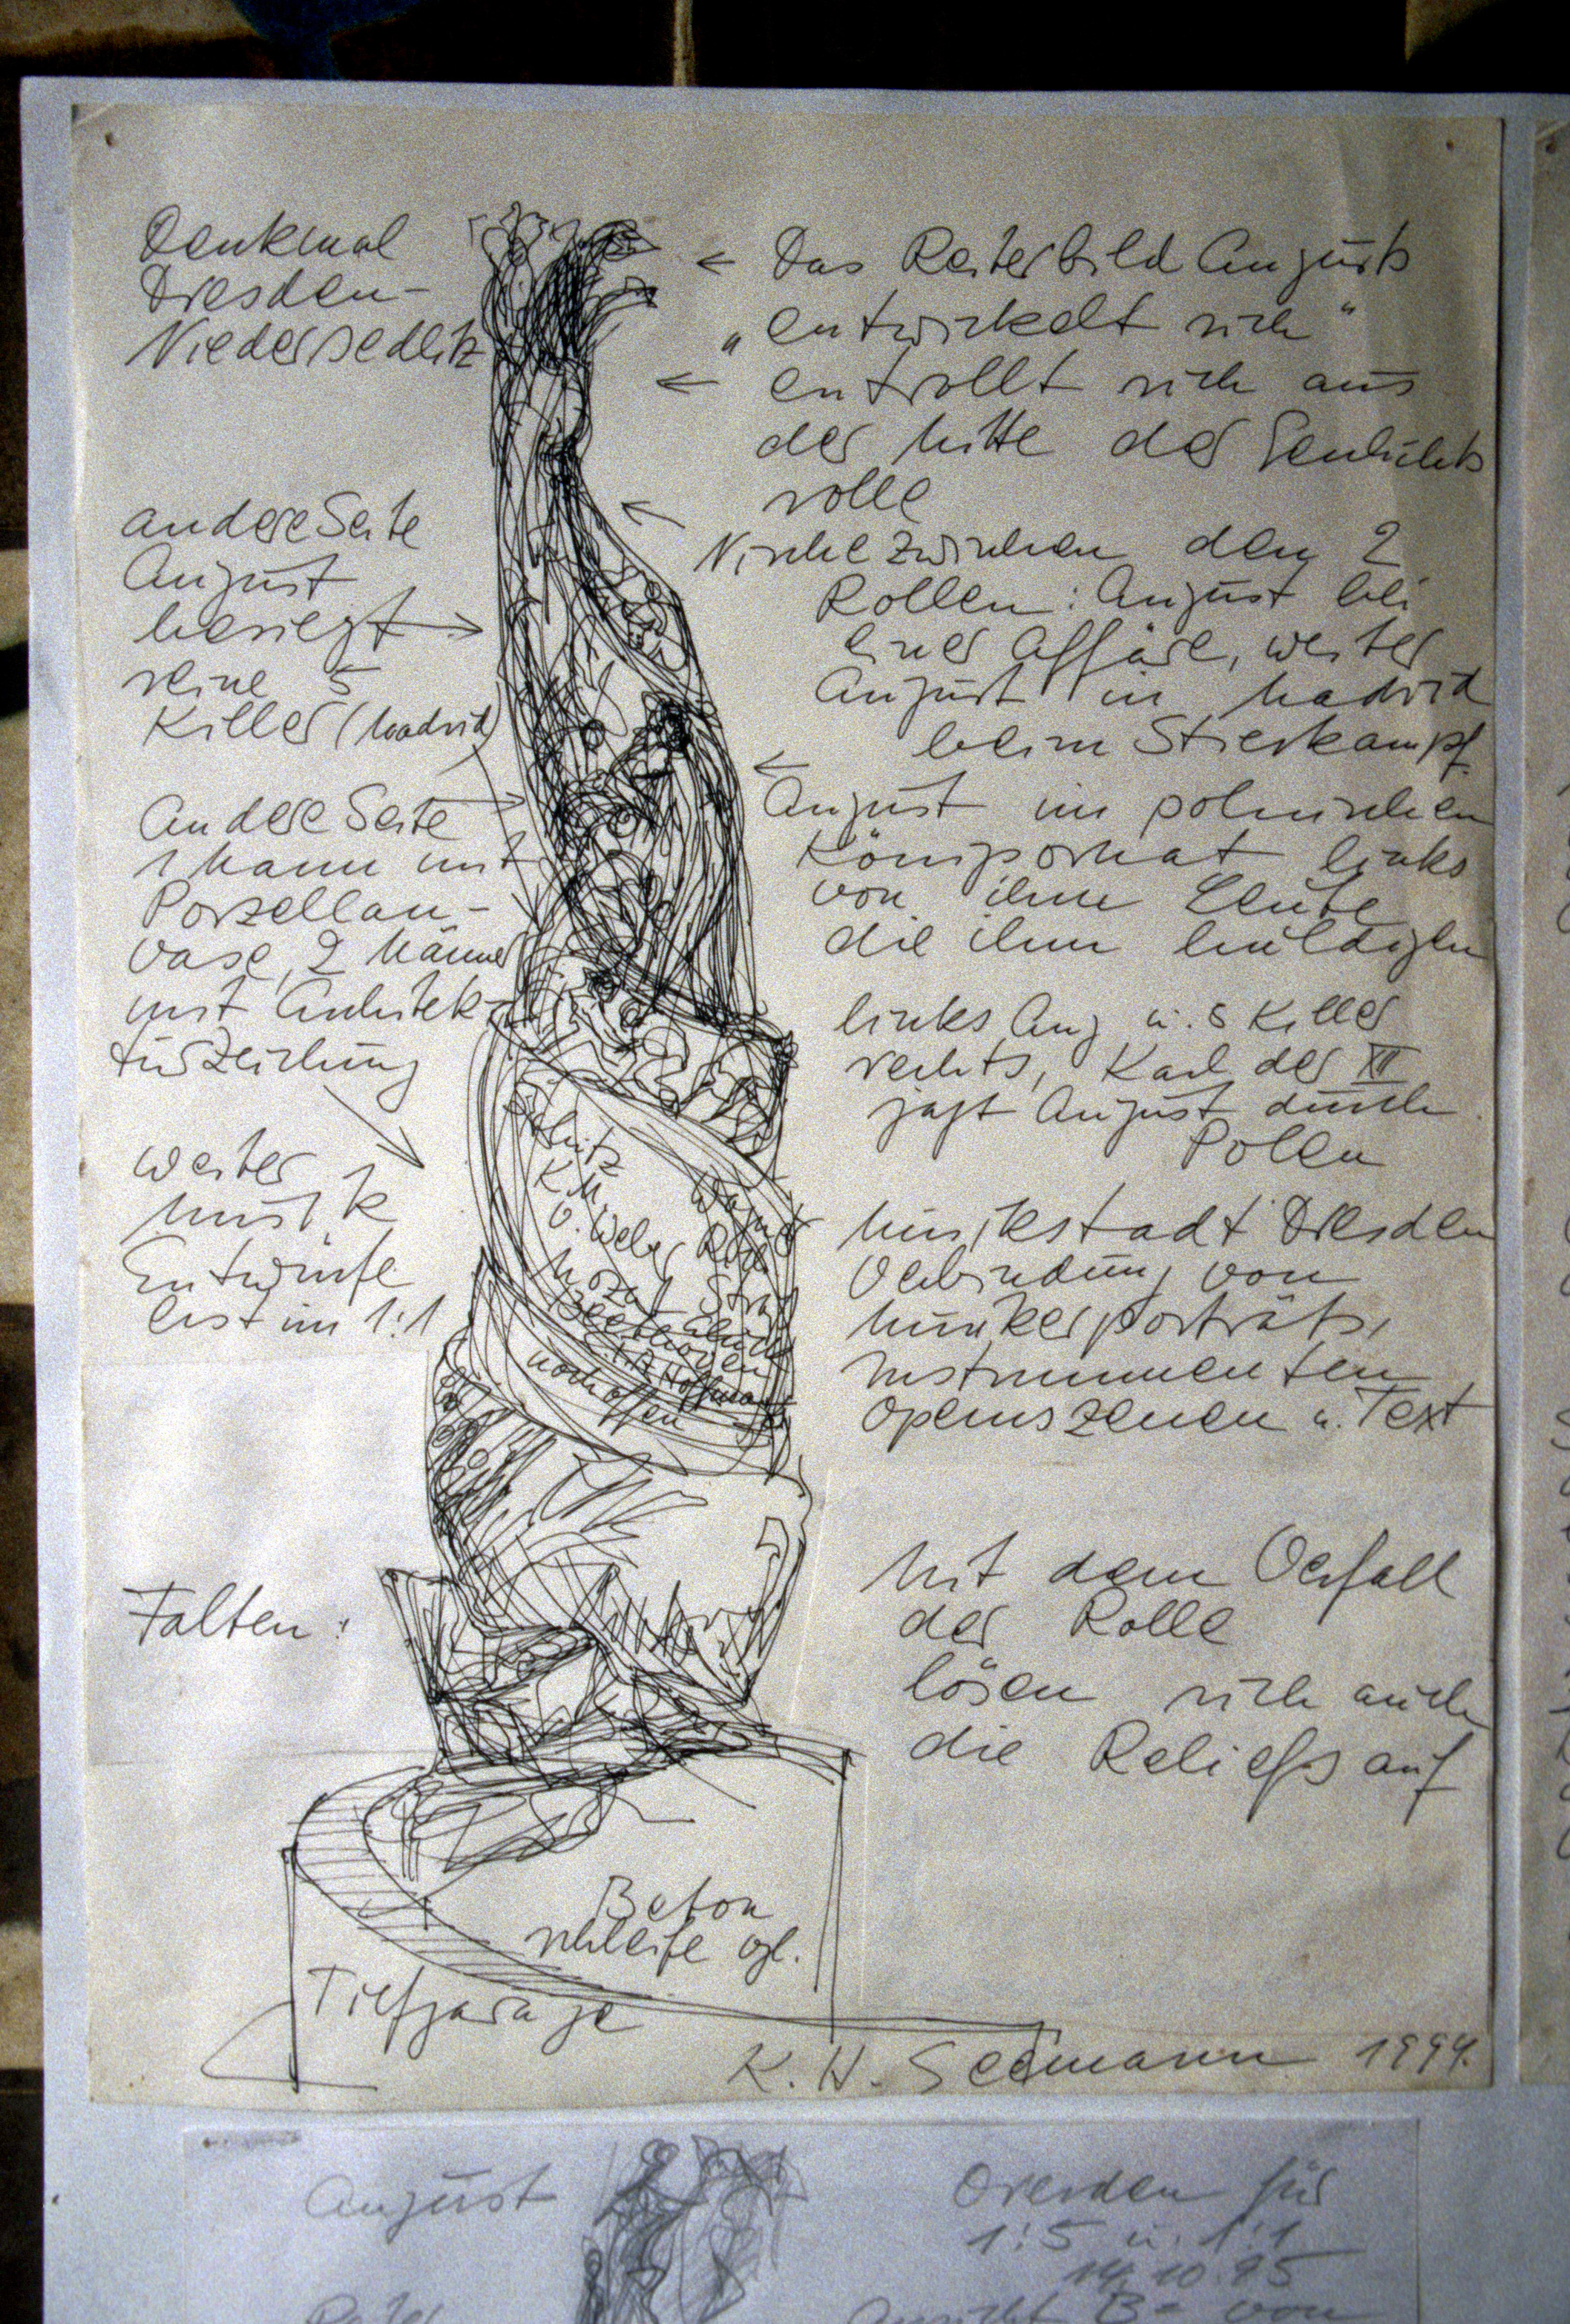 Denkmal
Dresden-
Niedersedlitz
andere Seite
August
besiegt
seine 5
Killer (Madrid)
Andere Seite
1 Mann mit
Porzellan-
vase, 2 Männer
mit Architek-
turzeichung
weiter
Musik
Entwürfe
erst im 1:1
Falten:
← Das Reiterbild Augusts
„entwickelt sich"
← entrollt sich aus
der Mitte der Geschichts
rolle
Nische zwischen den 2
Rollen: August bei
einer Affäre, weiter
August in Madrid
beim Stierkampf
August im polnischen
Königsornat links
von ihm Leute
die ihm huldigen
links Aug u. 5 Killer
rechts, Karl der XII
jagt August durch
Polen
Musikstadt Dresden
Verbindung von
Musikerporträts,
Instrumenten
Opernszenen u. Text
Mit dem Verfall
der Rolle
lösen sich auch
die Reliefs auf
Schütz
K. M.
v. Weber
Wagner
Mozart
Beethoven
Hoffmann
noch offen
Beton
schleife vgl.
Tiefgarage
K. H. Seemann 1994.
August
Dresden für
1:5 u. 1:1
14.10.95
Reiter
Ansicht B= von